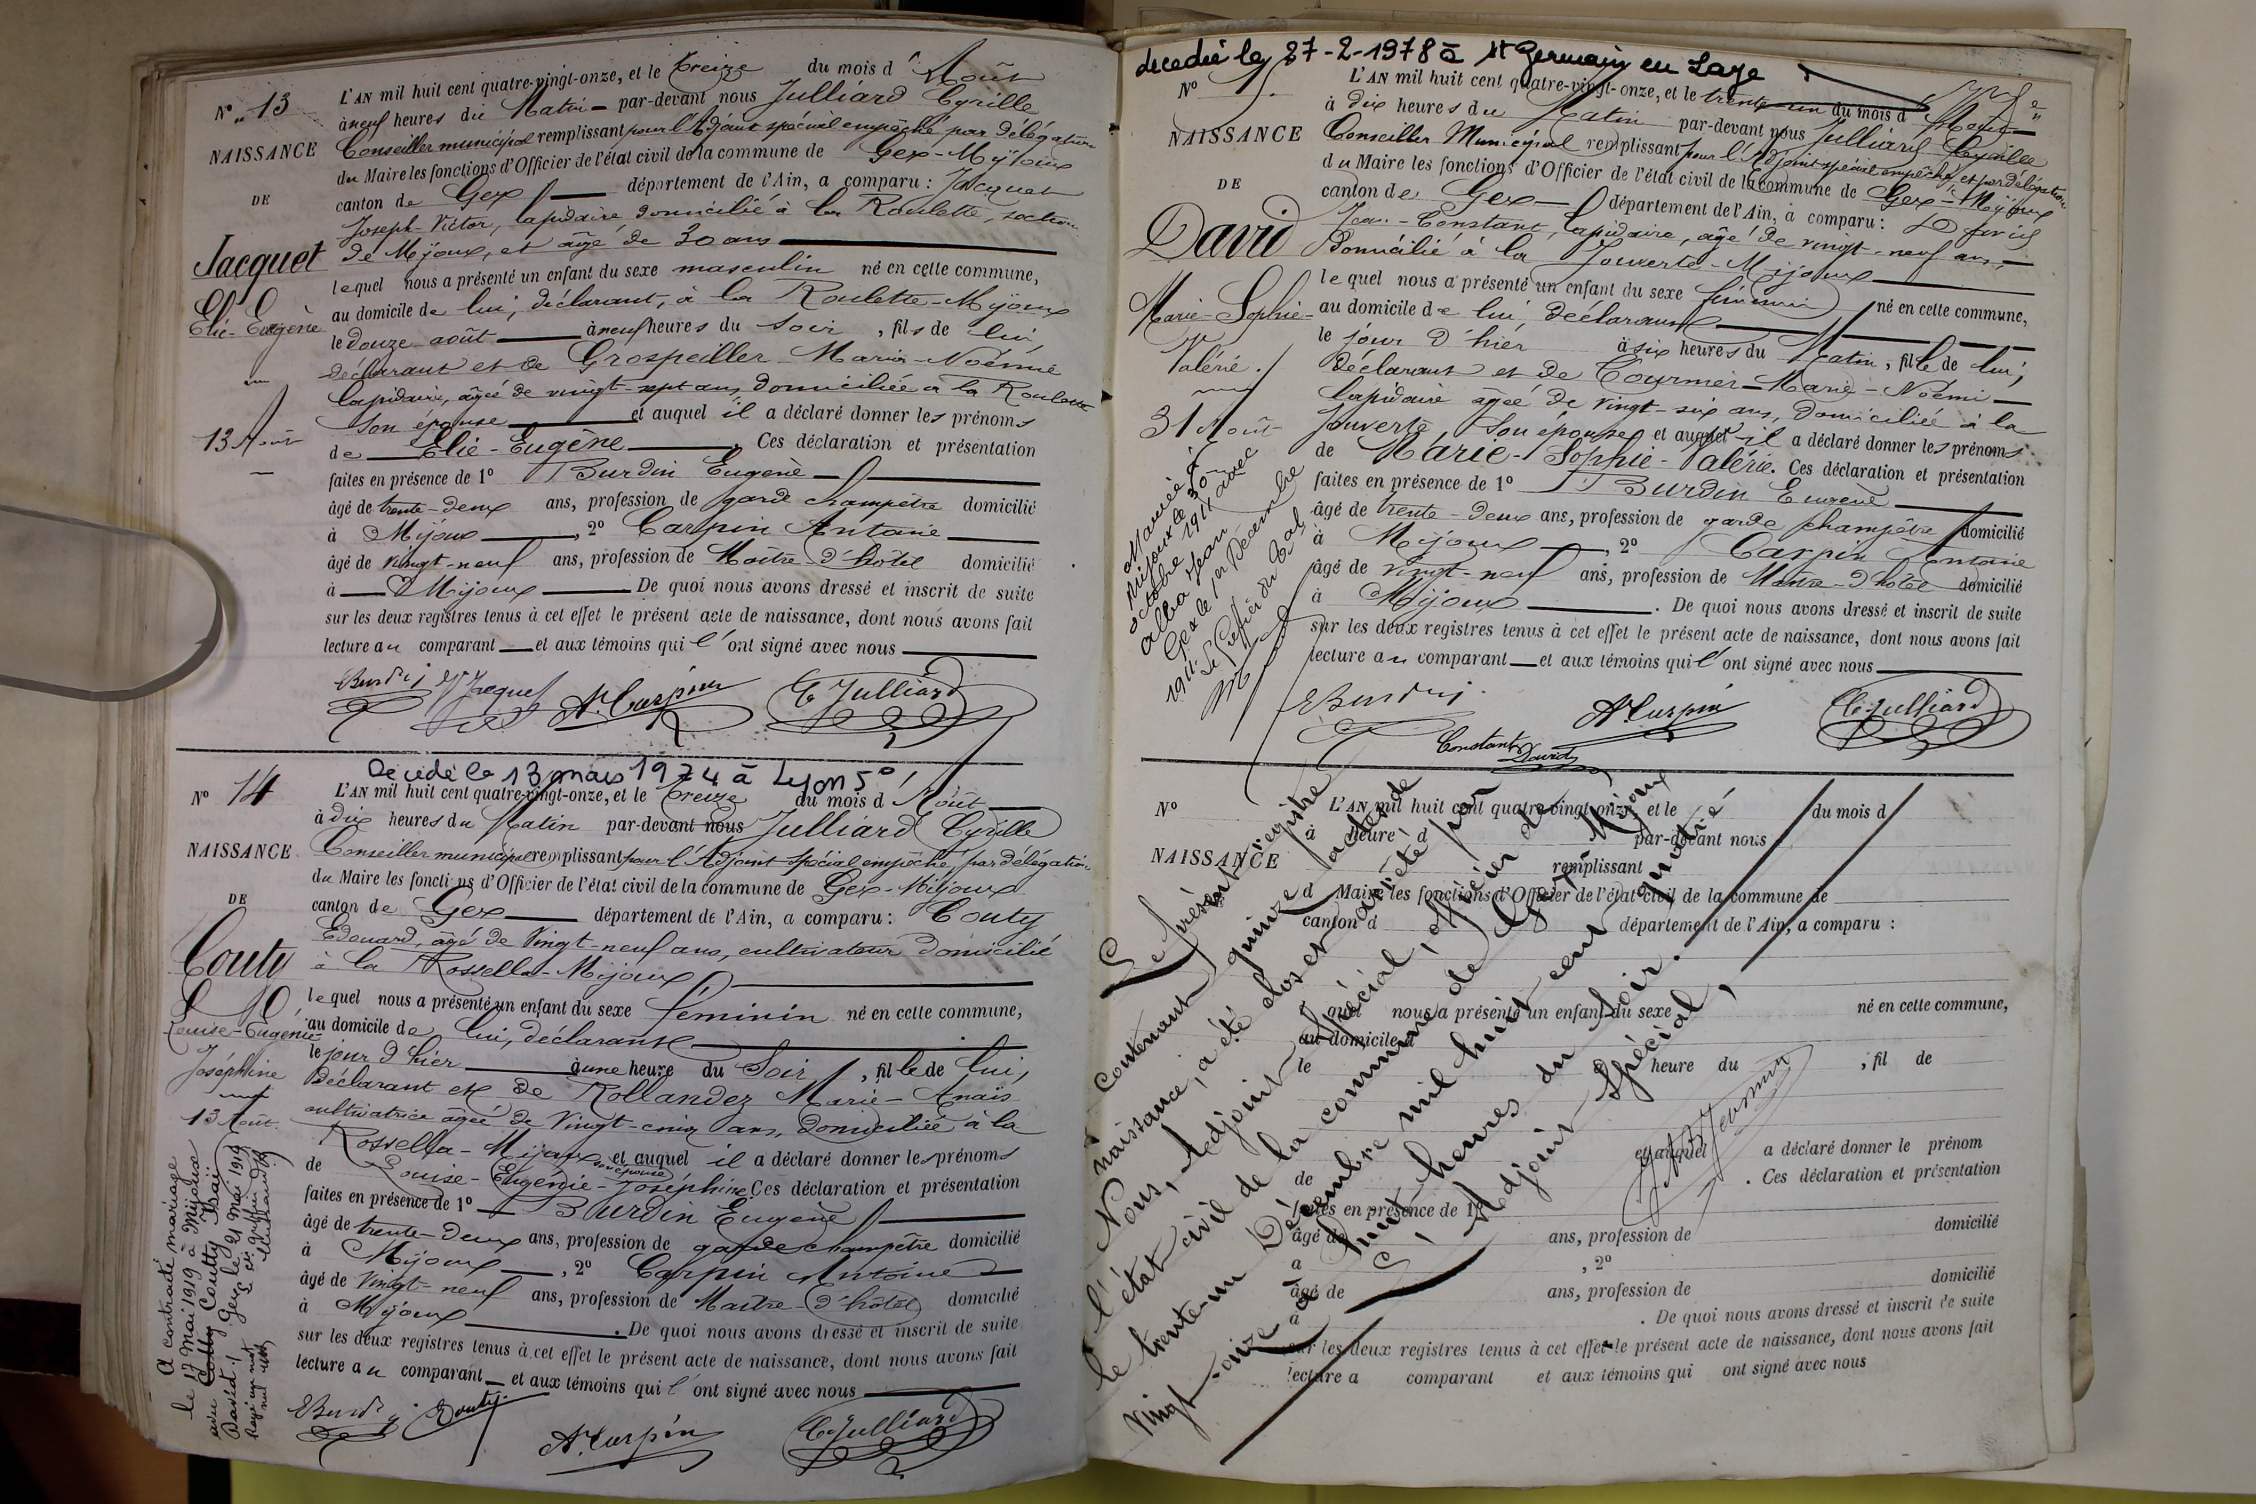 N° 13
NAISSANCE
DE
Jacquet
Elie-Eugène
13 Août
L'AN mil huit cent quatre-vingt-onze, et le treize du mois d'Août
à neuf heures du Matin par-devant nous Julliard Cyrille
Conseiller municipal remplissant pour l'Adjoint spécial empêché par délégation
du Maire les fonctions d'Officier de l'état civil de la commune de Gex-Mijoux
canton de Gex département de l'Ain, a comparu : Jacquet
Joseph-Victor, lapidaire domicilié à la Roulette, section
de Mijoux, et âgé de 30 ans
lequel nous a présenté un enfant du sexe masculin né en cette commune,
au domicile de lui, déclarant, à la Roulette-Mijoux
le douze août à neuf heures du soir, fils de lui,
déclarant et de Grospeiller Maria-Noémie
lapidaire, âgée de vingt-sept ans, domiciliée à la Roulette
son épouse et auquel il a déclaré donner les prénoms
de Elie-Eugène. Ces déclaration et présentation
faites en présence de 1° Burdin Eugène
âgé de trente-deux ans, profession de garde champêtre domicilié
à Mijoux, 2° Carpin Antoine
âgé de vingt-neuf ans, profession de Maître-d'hôtel domicilié
à Mijoux De quoi nous avons dressé et inscrit de suite
sur les deux registres tenus à cet effet le présent acte de naissance, dont nous avons fait
lecture au comparant et aux témoins qui l'ont signé avec nous
EBurdin Jacquet At Carpin C Julliard
Décédée le 13 mars 1974 à Lyon 5°
N° 14
NAISSANCE
DE
Couty
Louise-Eugénie
Joséphine
13 Août
L'AN mil huit cent quatre-vingt-onze, et le treize du mois d Août
à dix heures du Matin par-devant nous Julliard Cyrille
Conseiller municipal remplissant pour l'Adjoint spécial empêché par délégation
du Maire les fonctions d'Officier de l'état civil de la commune de Gex-Mijoux
canton de Gex département de l'Ain, a comparu : Couty
Edouard, âgé de vingt-neuf ans, cultivateur domicilié
à la Rossella-Mijoux
lequel nous a présenté un enfant du sexe féminin né en cette commune,
au domicile de lui, déclarant
le jour d'hier à une heure du Soir, fille de lui,
déclarant et de Rollandez Marie-Anaïs
cultivatrice âgée de vingt-cinq ans, domiciliée à la
Rossella-Mijoux son épouse et auquel il a déclaré donner les prénoms
de Louise-Eugénie-Joséphine. Ces déclaration et présentation
faites en présence de 1° Burdin Eugène
âgé de trente-deux ans, profession de garde champêtre domicilié
à Mijoux, 2° Carpin Antoine
âgé de vingt-neuf ans, profession de Maître-d'hôtel domicilié
à Mijoux. De quoi nous avons dressé et inscrit de suite
sur les deux registres tenus à cet effet le présent acte de naissance, dont nous avons fait
lecture au comparant et aux témoins qui l'ont signé avec nous
EBurdin Couty At Carpin C Julliard
A contracté mariage
le 17 Mai 1919 à Mijoux
avec Coutty
David. Gex le 21 Mai 1919
Rayé un mot
nul
décédée le 27-2-1978 à St Germain en Laye
N°
NAISSANCE
DE
David
Marie-Sophie-
Valérie.
31 Août
L'AN mil huit cent quatre-vingt-onze, et le trente-un du mois d'Août
à dix heures du Matin par-devant nous Julliard Cyrille
Conseiller Municipal remplissant pour l'Adjoint spécial empêché et par délégation
du Maire les fonctions d'Officier de l'état civil de la commune de Gex-Mijoux
canton de Gex département de l'Ain, a comparu : David
Jean-Constant, lapidaire, âgé de vingt-neuf ans,
domicilié à la Jouverte-Mijoux
lequel nous a présenté un enfant du sexe féminin né en cette commune,
au domicile de lui déclarant
le jour d'hier à six heures du Matin, fille de lui,
déclarant et de Tournier-Marie-Noémi
lapidaire âgée de vingt-six ans, domiciliée à la
Jouverte, son épouse, et auquel il a déclaré donner les prénoms
de Marie-Sophie-Valérie. Ces déclaration et présentation
faites en présence de 1° Burdin Eugène
âgé de trente-deux ans, profession de garde champêtre domicilié
à Mijoux, 2° Carpin Antoine
âgé de vingt-neuf ans, profession de Maître-d'hôtel domicilié
à Mijoux. De quoi nous avons dressé et inscrit de suite
sur les deux registres tenus à cet effet le présent acte de naissance, dont nous avons fait
lecture au comparant et aux témoins qui l'ont signé avec nous
EBurdin At Carpin C Julliard
Constant David
Mariée à
Mijoux le 30
octobre 1911 avec
Alba Jean
Gex le 1er Décembre
1911 Le Greffier du Tal,
N°
NAISSANCE
L'AN mil huit cent quatre-vingt-onze, et le du mois d
à heure d par-devant nous
remplissant
d Maire les fonctions d'Officier de l'état civil de la commune de
canton d département de l'Ain, a comparu :
quel nous a présenté un enfant du sexe né en cette commune,
au domicile d
le à heure du , fil de
et auquel a déclaré donner le prénom
de . Ces déclaration et présentation
faites en présence de 1°
âgé de ans, profession de domicilié
à , 2°
âgé de ans, profession de domicilié
à . De quoi nous avons dressé et inscrit de suite
sur les deux registres tenus à cet effet le présent acte de naissance, dont nous avons fait
lecture a comparant et aux témoins qui ont signé avec nous
Le présent registre
contenant quinze actes de
naissance, a été clos et arrêté par
Nous, Adjoint Spécial, officier de
l'état civil de la commune de Gex-Mijoux
le trente-un Décembre mil huit cent quatre
vingt-onze à huit heures du soir.
L'Adjoint Spécial,